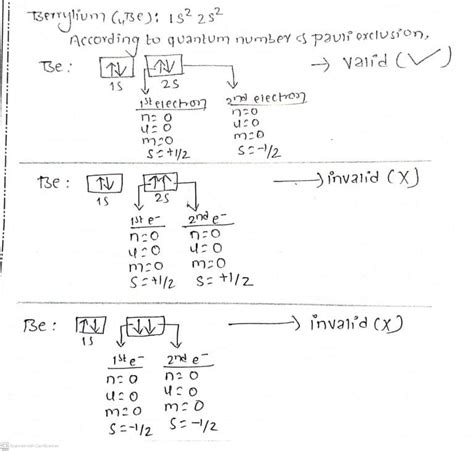 Berrylium (₄Be): 1S² 2S²
According to quantum number & pauli exclusion,
Be: ↑↓ ↑↓ → valid (✓)
1S 2S
1st electron 2nd electron
n=0 n=0
u=0 u=0
m=0 m=0
S=+1/2 S=-1/2
Be: ↑↓ ↑↑ → invalid (X)
1S 2S
1st e⁻ 2nd e⁻
n=0 n=0
u=0 u=0
m=0 m=0
S=+1/2 S=+1/2
Be: ↑↓ ↓↓ → invalid (X)
1S
1st e⁻ 2nd e⁻
n=0 n=0
u=0 u=0
m=0 m=0
S=-1/2 S=-1/2